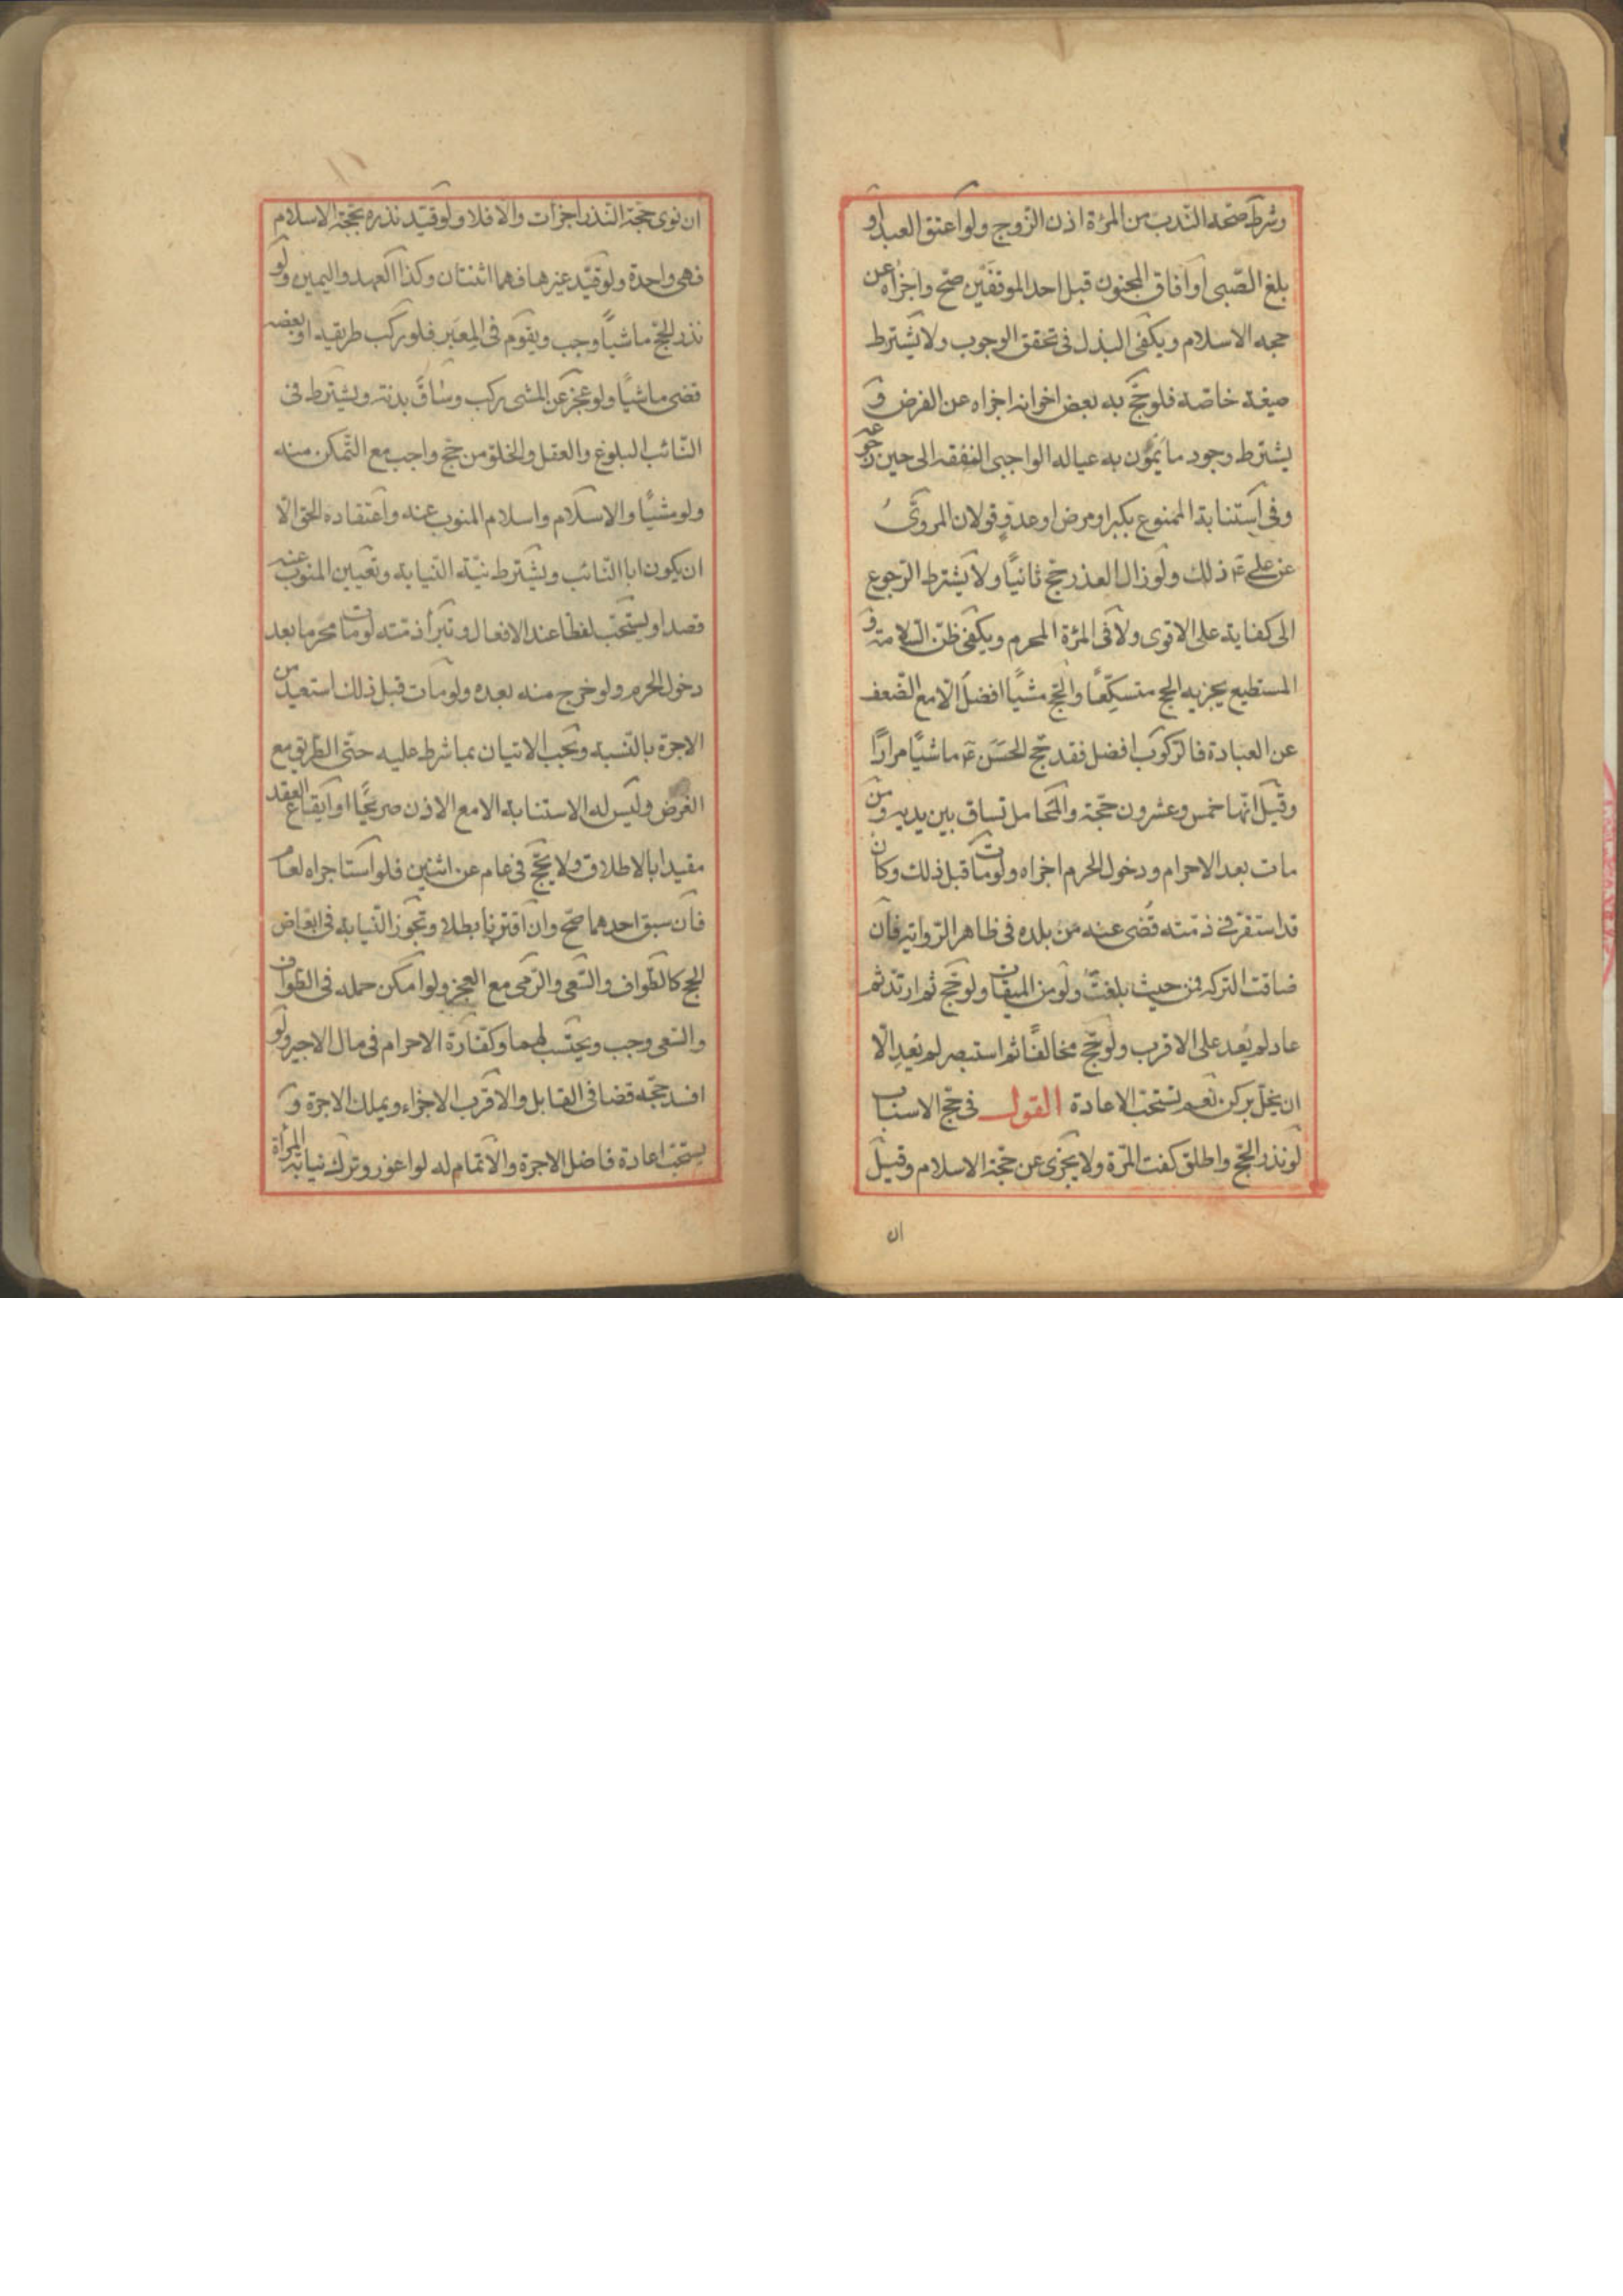 وشرط صحة الندب من المرئة اذن الزوج ولو اعتق العبد او
بلغ الصبى او افاق المجنون قبل احد الموقفين صح واجزاه عن
حجه الاسلام ويكفى البذل فى تحقق الوجوب ولا يشترط
صيغة خاصة فلو حج به بعض اخوانه اجزاه عن الفرض و
يشترط وجود ما يمون به عياله الواجبى النفقه الى حين رجوعه
وفى استنابة الممنوع بكبر او مرض او عدو قولان المروى
عن على ع ذلك ولو زال العذر حج ثانيًا ولا يشترط الرجوع
الى كفاية على الاقوى ولا فى المرئة المحرم ويكفى ظن السلامة و
المستطيع يجزيه الحج متسكعًا والحج مشيًا افضل الا مع الضعف
عن العبادة فالركوب افضل فقد حج الحسن ع ماشيًا مرارًا
وقيل انها خمس وعشرون حجة والمحامل تساق بين يديه ومن
مات بعد الاحرام ودخول الحرم اجزاه ولو مات قبل ذلك وكان
قد استقر فى ذمته قضى عنه من بلده فى ظاهر الرواية فان
ضاقت التركه فمن حيث بلغت ولو من الميقات ولو حج ثم ارتد ثم
عاد لم يعد على الاقرب ولو حج مخالفًا ثم استبصر لم يعد الا
ان يخل بركن نعم تستحب الاعادة القول فى حج الاسباب
لو نذر الحج واطلق كفت المرة ولا يجزى عن حجة الاسلام وقيل
ان
ان نوى حجة النذر اجزات والا فلا ولو قيد نذره بحجة الاسلام
فهى واحدة ولو قيد غيرها فهما اثنتان وكذا العهد واليمين ولو
نذر الحج ماشيًا وجب ويقوم فى المعبر فلو ركب طريقه او بعضه
قضى ماشيًا ولو عجز عن المشى ركب وساق بدنة ويشترط فى
النائب البلوغ والعقل والخلو من حج واجب مع التمكن منه
ولو مشيًا والاسلام واسلام المنوب عنه واعتقاده الحق الا
ان يكون ابا النائب ويشترط نية النيابة وتعيين المنوب عنه
قصدا ويستحب لفظا عند الافعال وتبرأ ذمته لو مات محرما بعد
دخول الحرم ولو خرج منه بعده ولو مات قبل ذلك استعيد من
الاجرة بالنسبة ويجب الاتيان بما شرط عليه حتى الطريق مع
الغرض وليس له الاستنابة الا مع الاذن صريحًا او ايقاع العقد
مقيدا بالاطلاق ولا يحج فى عام عن اثنين فلو استاجراه لعام
فان سبق احدهما صح وان اقترنا بطلا وتجوز النيابة فى ابعاض
الحج كالطواف والسعى والرمى مع العجز ولو امكن حمله فى الطواف
والسعى وجب ويحتسب لهما وكفارة الاحرام فى مال الاجير ولو
افسد حجه قضا فى القابل والاقرب الاجزاء ويملك الاجرة و
يستحب اعادة فاضل الاجرة والاتمام له لو اعوز وترك نيابة المرأة